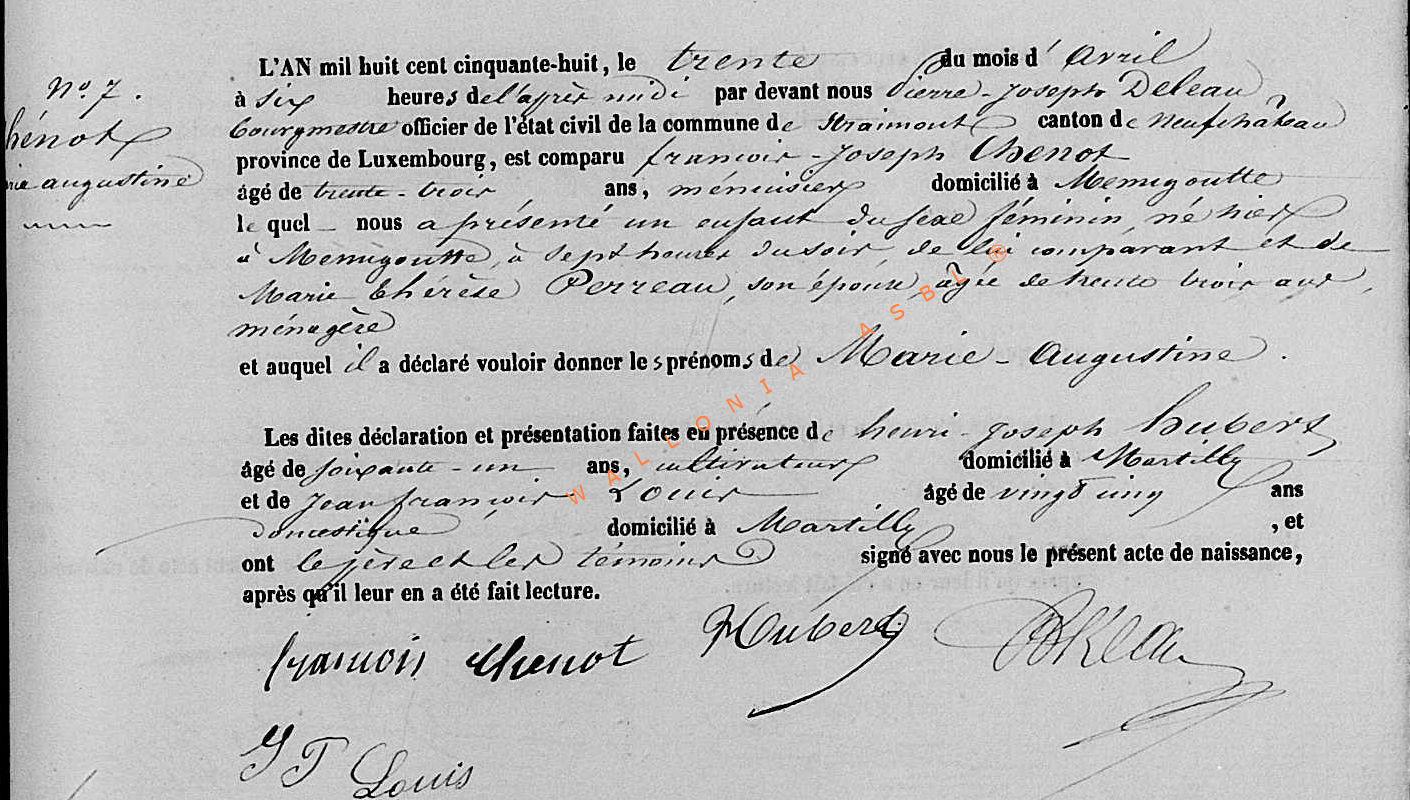 L'AN mil huit cent cinquante-huit, le trente du mois d' avril
N° 7.
à six heures de l'après midi par devant nous Pierre-Joseph Deleau
bourgmestre officier de l'état civil de la commune de Straimont canton de Neufchâteau
hénot
province de Luxembourg, est comparu françois-Joseph Chenot
rie augustine
âgé de trente-trois ans, ménuisier domicilié à Menugoutte
le quel nous a présenté un enfant du sexe féminin, né hier
à Menugoutte, à sept heures du soir, de lui comparant et de
Marie Thérèse Perreau, son épouse, âgée de trente trois ans,
ménagère
et auquel il a déclaré vouloir donner les prénoms de Marie-Augustine.
Les dites déclaration et présentation faites en présence de henri-Joseph hubert
âgé de soixante-un ans, cultivateur domicilié à Martilly
et de Jean françois Louis âgé de vingt cinq ans
domestique domicilié à Martilly, et
ont le père et les témoins signé avec nous le présent acte de naissance,
après qu'il leur en a été fait lecture.
françois chenot Hubert
J F Louis
WALLONIA ASBL ®